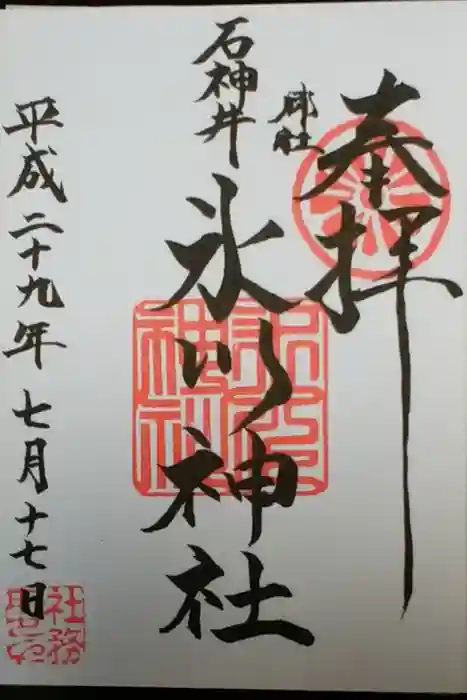 奉拝
郷社
石神井
氷川神社
平成二十九年七月十七日
氷川神社
社務